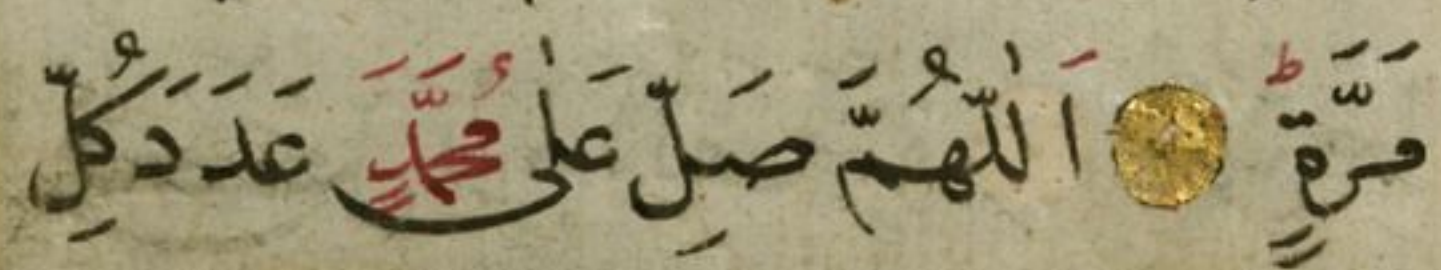 مَرَّةٍ ط اَللّٰهُمَّ صَلِّ عَلٰى مُحَمَّدٍ عَدَدَ كُلِّ